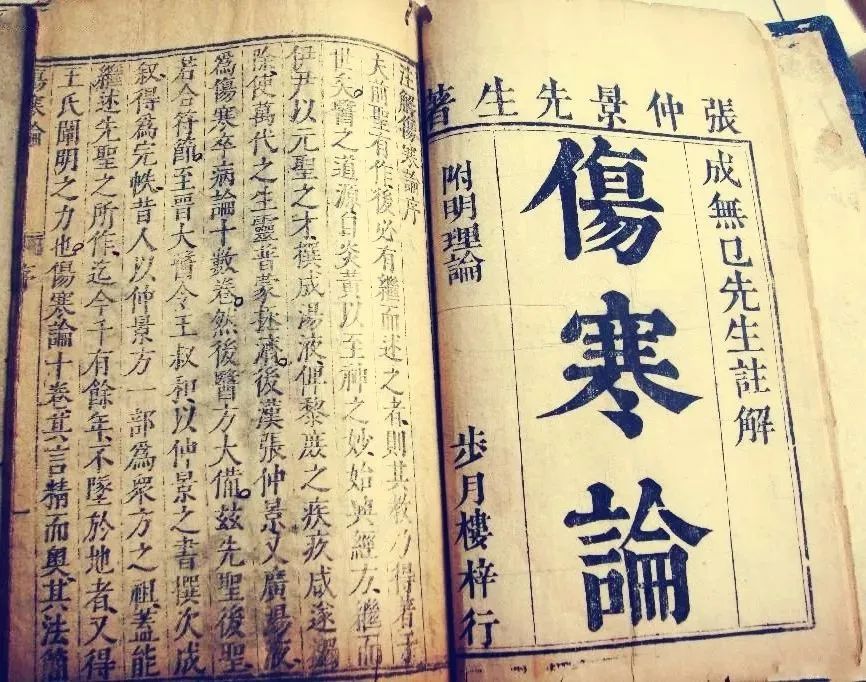 張仲景先生著
成無已先生註解
傷寒論
附明理論
步月樓梓行
注解傷寒論序
夫前聖有作後必有繼而述之者則其教乃得著于
世矣醫之道源自炎黃以至神之妙始興經方繼而
伊尹以元聖之才撰成湯液俾黎庶之疾疢咸遂蠲
除使萬代之生靈普蒙拯濟後漢張仲景又廣湯液
爲傷寒卒病論十數卷然後醫方大備茲先聖後聖
若合符節至晉大醫令王叔和以仲景之書撰次成
叙得爲完帙昔人以仲景方一部爲眾方之祖蓋能
繼述先聖之所作迄今千有餘年不墜於地者又得
王氏闡明之力也傷寒論十卷其言精而奧其法簡
傷寒論
序